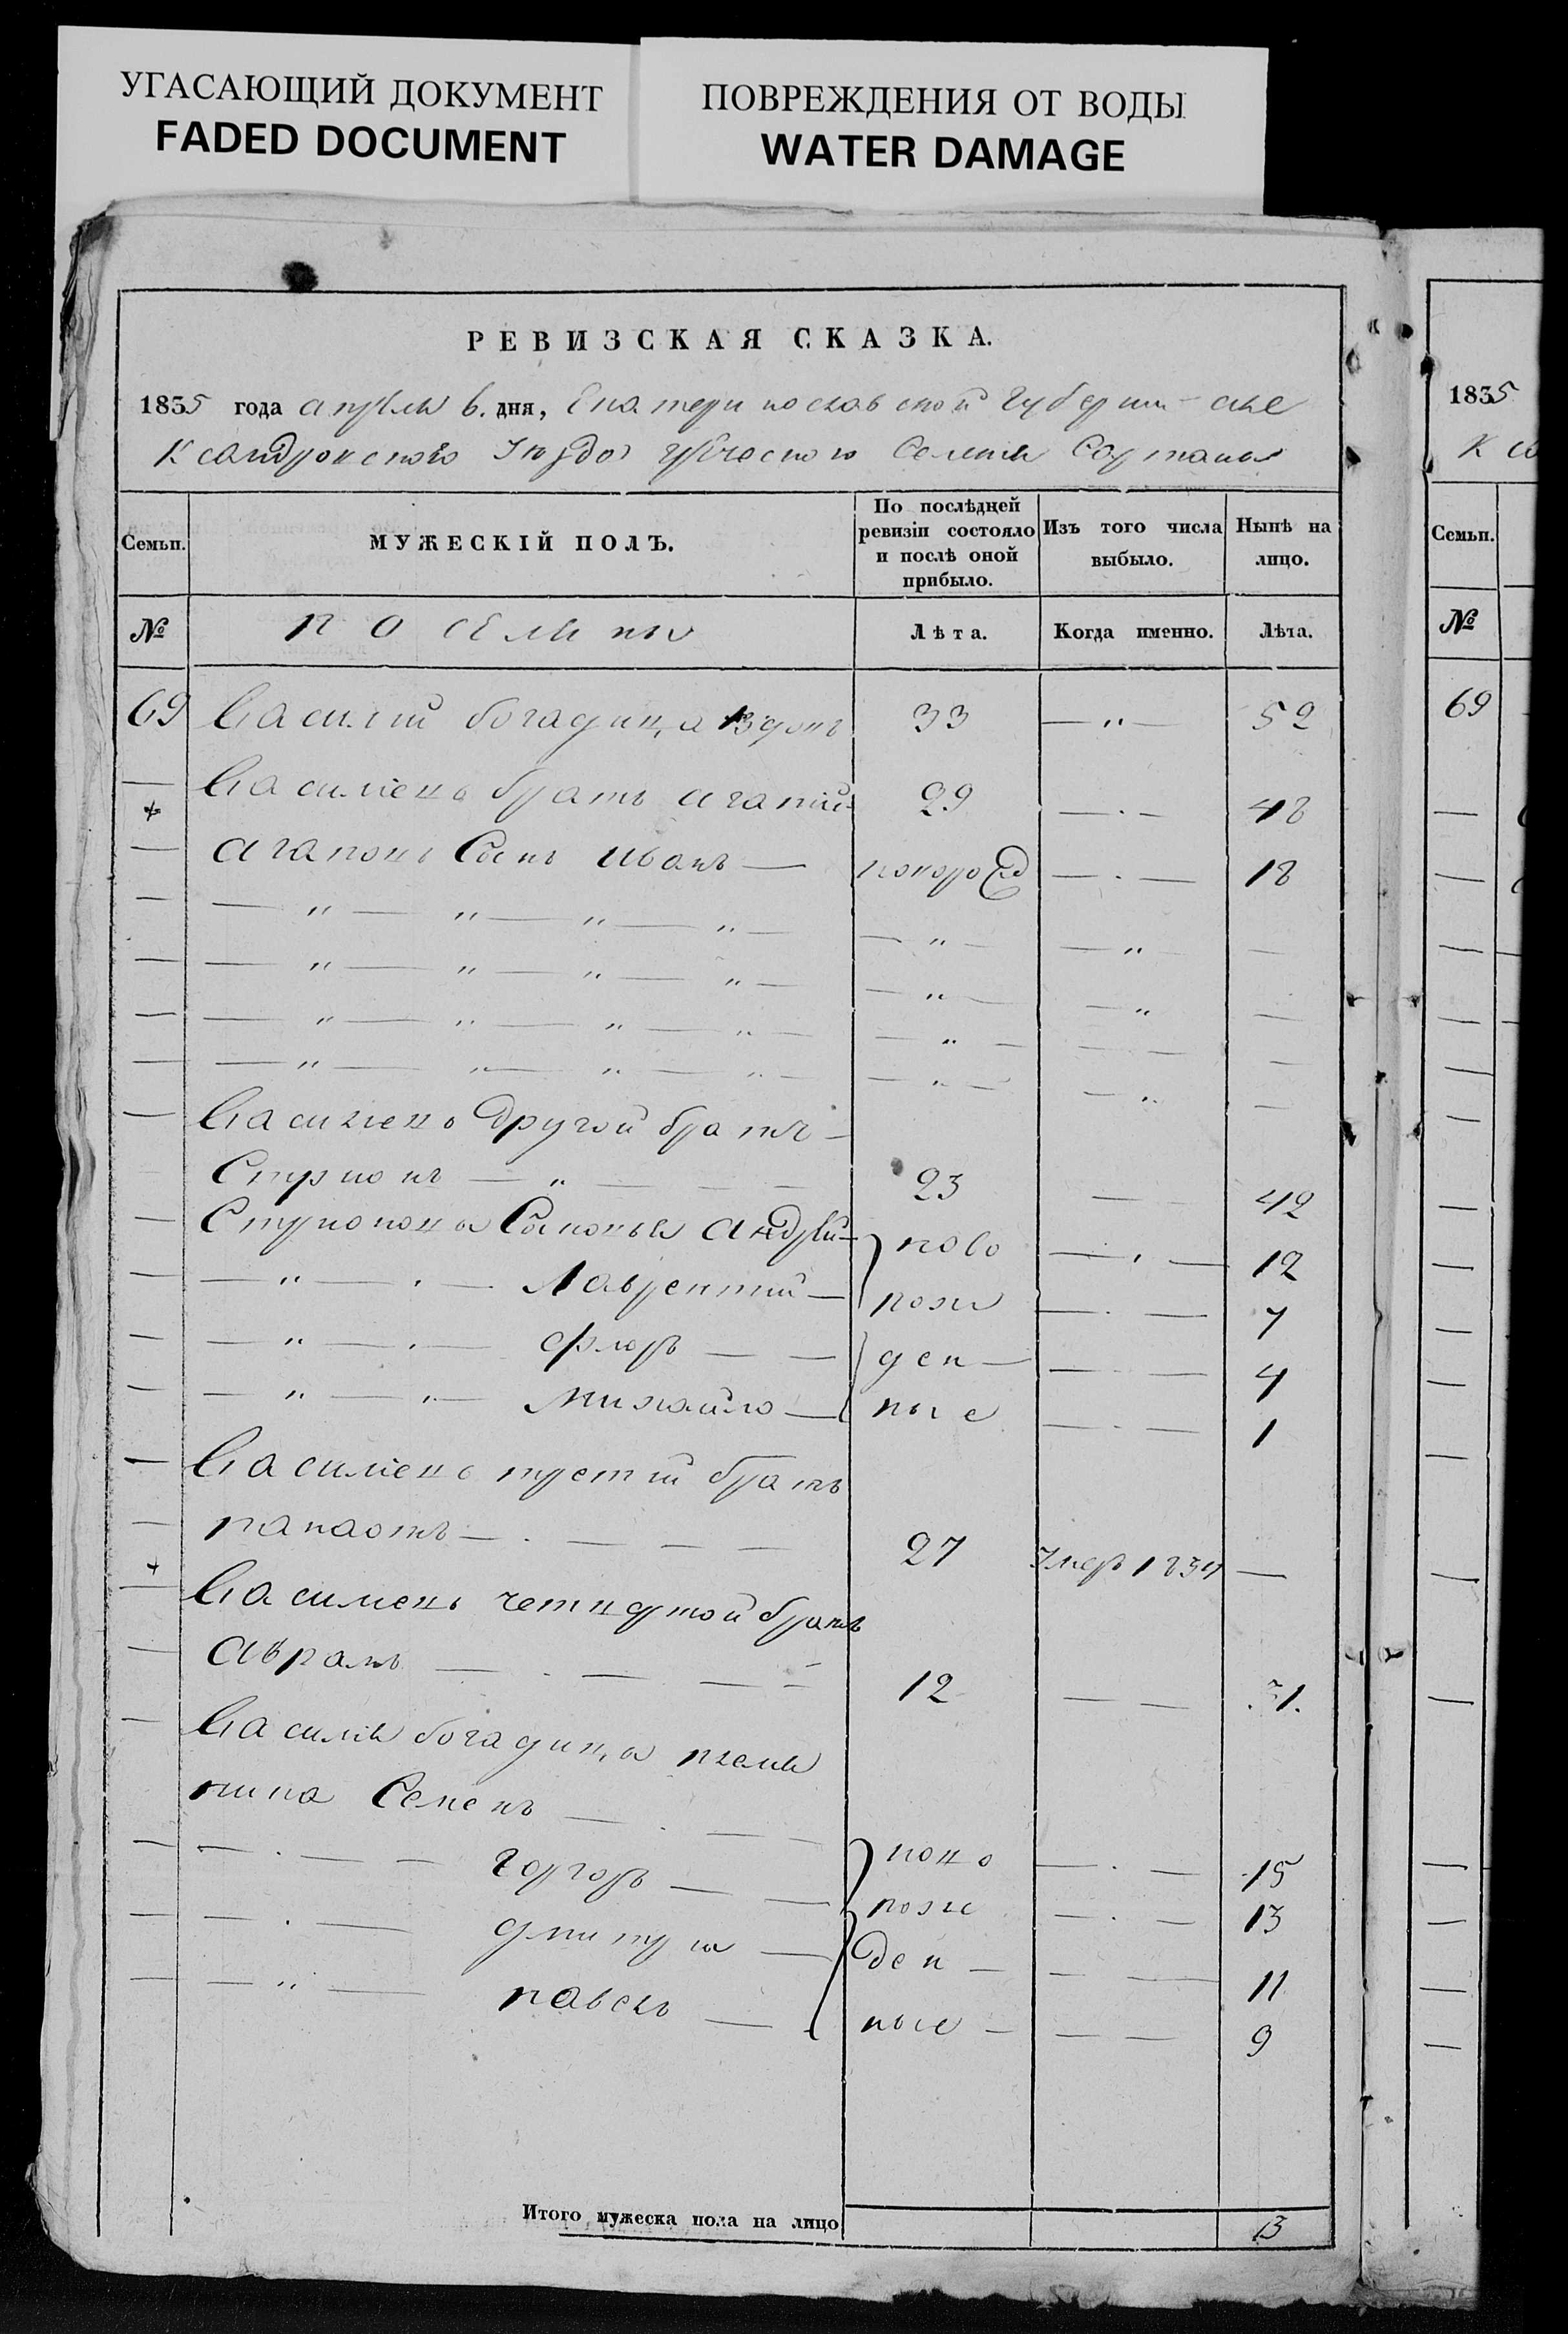 УГАСАЮЩИЙ ДОКУМЕНТ
FADED DOCUMENT
ПОВРЕЖДЕНИЯ ОТ ВОДЫ
WATER DAMAGE
РЕВИЗСКАЯ СКАЗКА.
1835 года апреля 6. дня, Екатеринославской Губернии але
ксандровского уезда греческого селения Сартана
Семьи. МУЖЕСКІЙ ПОЛЪ. По послѣдней ревизіи состояло и послѣ оной прибыло. Изъ того числа выбыло. Нынѣ на лицо.
№ поселяне Лѣта. Когда именно. Лѣта.
69 Василий богадица 33 — " — 52
Васильевъ братъ агапий 29 — . — 48
агаповъ Сынъ иванъ — новорожд — . — 18
Васильевъ другой братъ —
23 — — 42
Сыновья андрей — ново — . — 12
— " — . — Лаврентий — рож — . — 7
— " — . — флоръ — — ден — — . — 4
— " — " — михайло — ные — . — 1
Васильевъ третий братъ
панаотъ — . — — — 27 умеръ 1834 —
Василиевъ четвертой братъ
авраамъ — . — — — 12 — — 31.
Василия богадица племя
ника Семенъ — . — — ново — . — 15
— . — — горгоръ — — рож — . — 13
— . — дмитри — ден — — — 11
— " — павелъ — . ные — — — 9
Итого мужеска пола на лицо 13
1835
Семьи.
№
69